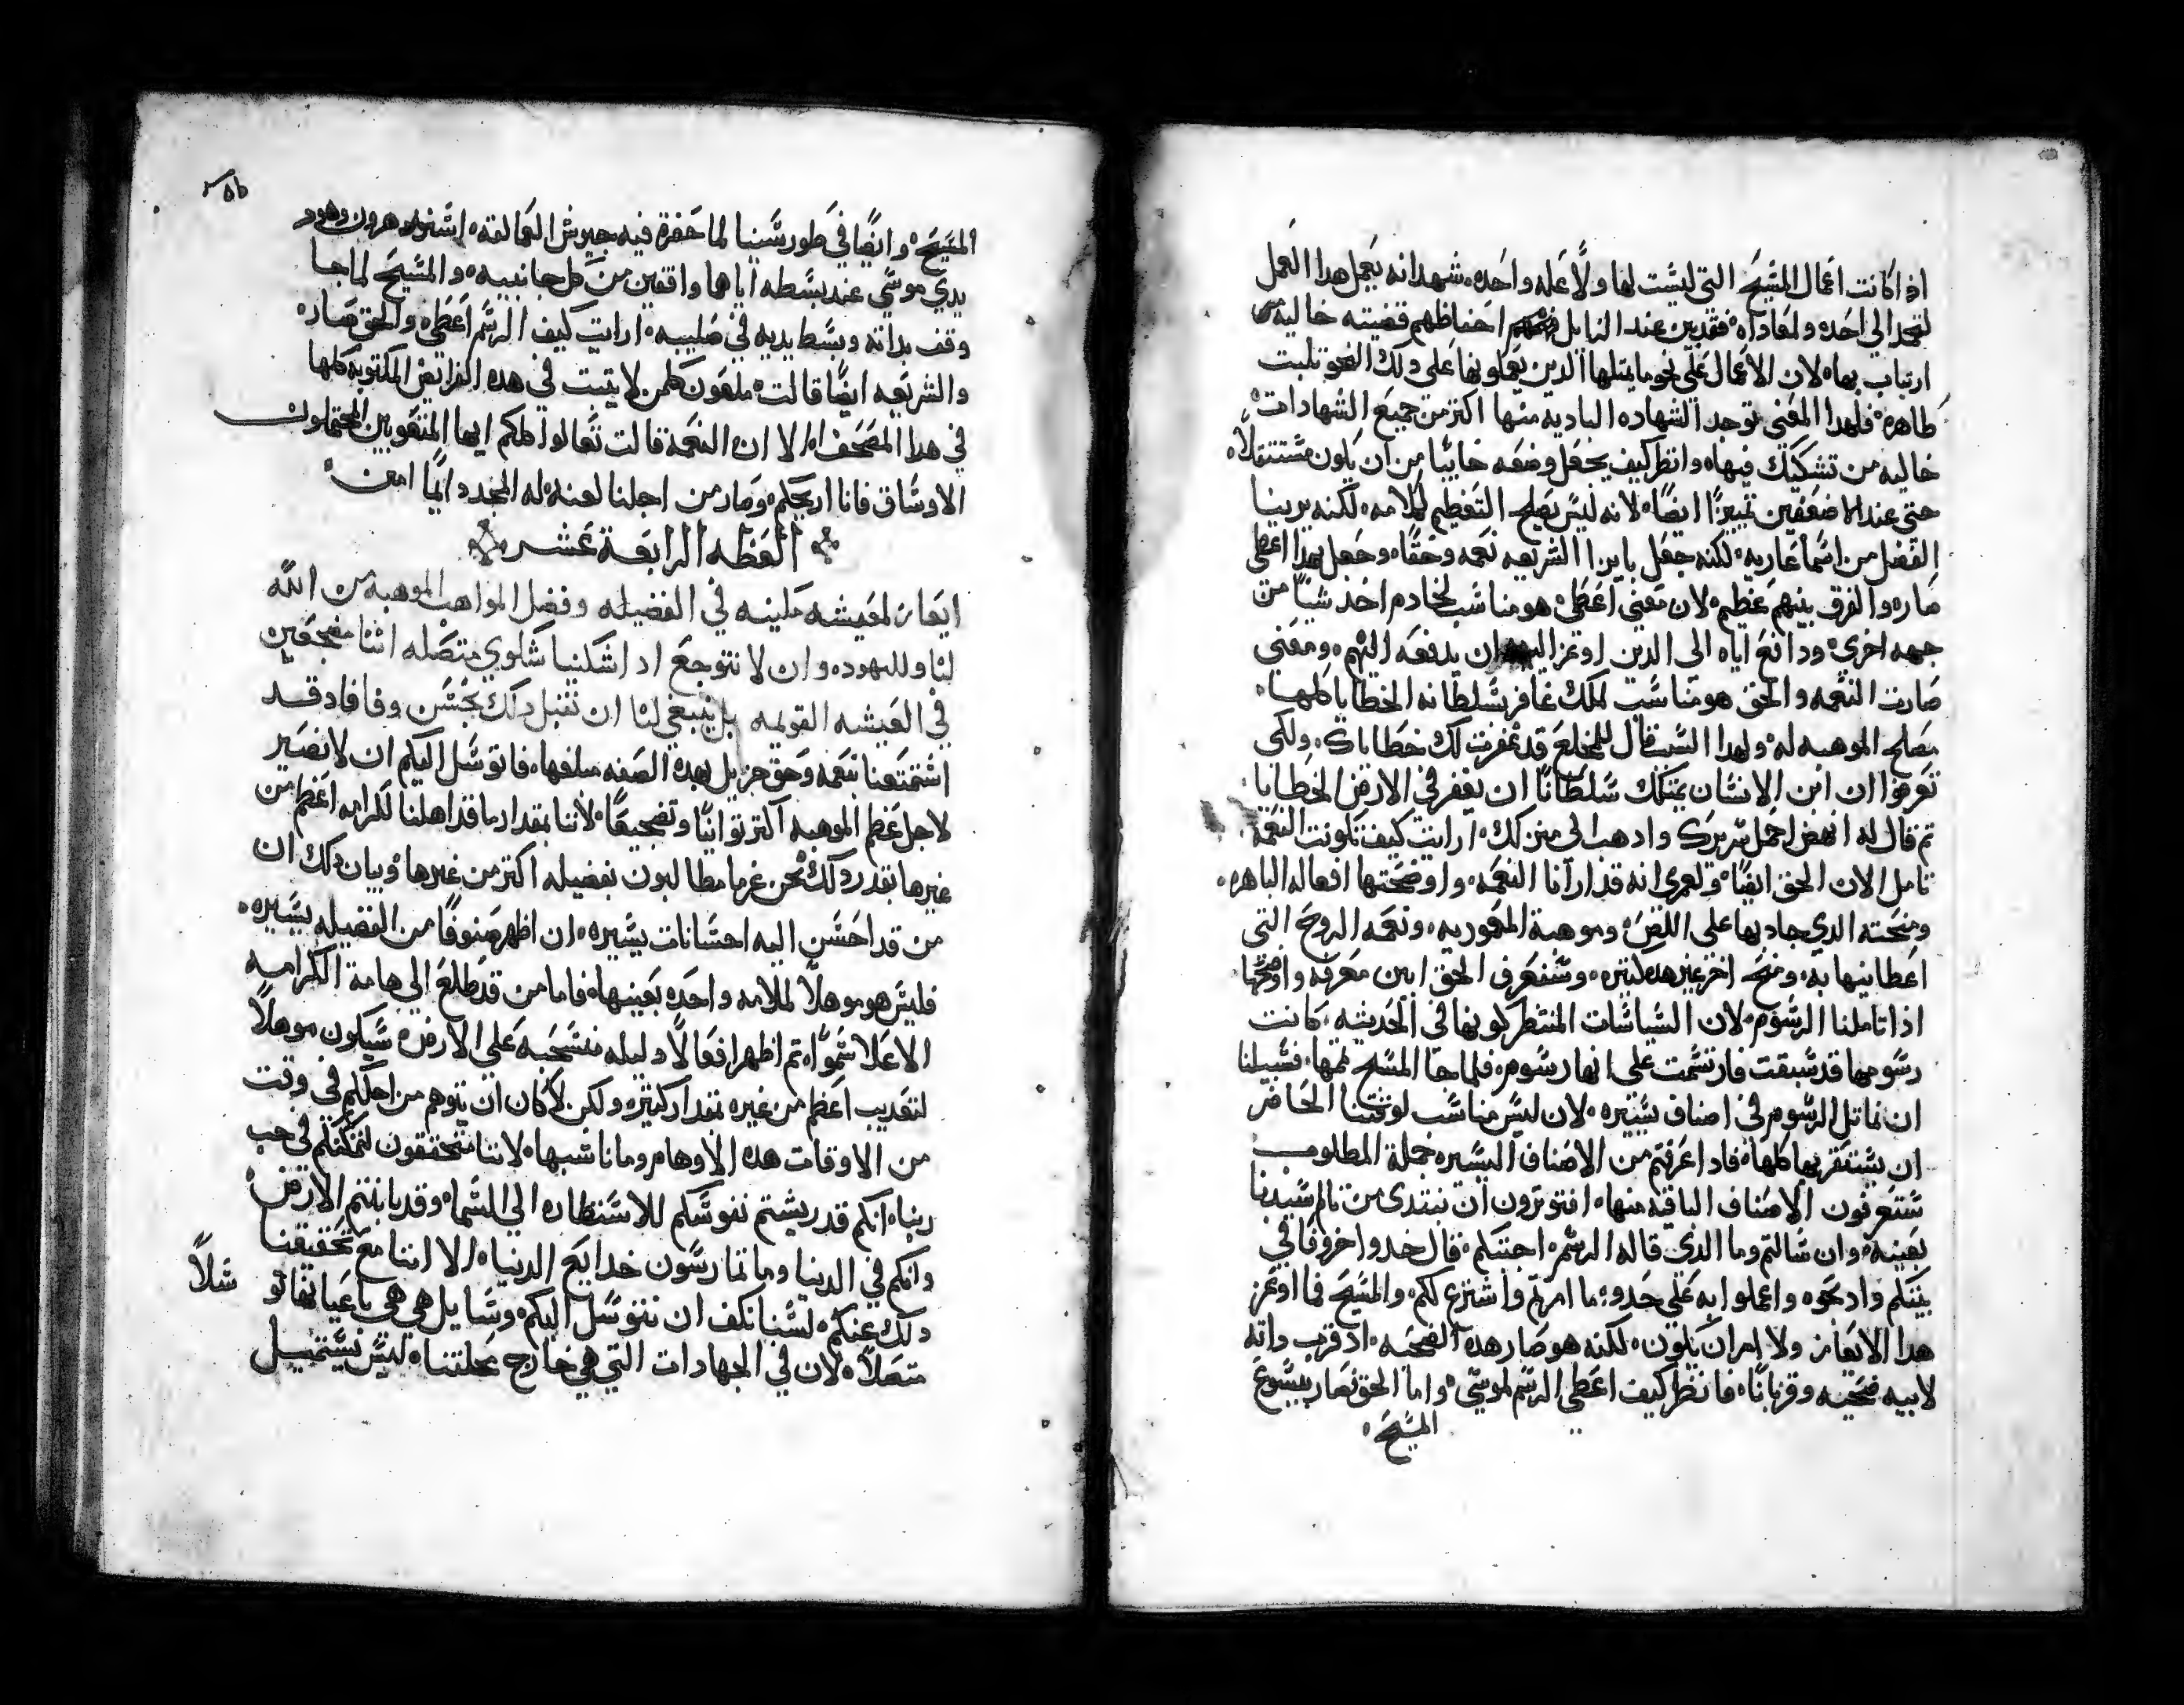 اذ اكانت اعمال المسيح التي ليست لها ولا عله واحده شهدانه يعمل هدا العمل
لتمجد ابي احده ولمعاداه فقدبين عند النابل احتاظهم قضيته خاليه من
ارتياب بها لان الاعمال علي نحو مايمتلها الدين يعملونها علي دلك النحو تلبت
ظاهره فلهدا المعني توجد الشهاده الباديه منها اكترمن جميع الشهادات
خاليه من تشكيك فيها وانظر كيف يجعل وضعه خايبا من ان يكون مستتقلا
حتي عند الاضعفين تمييزا ايضا لانه ليس يصلح التعظيم لكلامه لكنه يرينا
الفضل من اسما عاريه لكنه جعل بايرا الشريعه نعمه وحقا وجعل بهدا اعطي
صاره والفرق بينهم عظيم لان معني اعطي هو مناسب لخادم اخد شيا من
جهه اخري ودافع اياه الي الدين اوعز اليه ان يدفعه اليهم ومعني
صارت النعمه والحق هو مناسب لملك غافر بسلطانه الخطايا كلها
مصلح الموهبه له ولهدا السبب قال للمخلع قد غفرت لك خطاياك ولكي
تعرفوا ان ابن الانسان يمتلك سلطانا ان يغفر في الارض الخطايا
تم قال له انهض احمل سريرك وادهب الي منزلك ارايت كيف تكونت النعمه
تامل الان الحق ايضا ولعمري انه قد ارانا النعمه واوضحتها افعاله الباهره
ومنحته الدي جاد بها علي اللص وموهبة المعموديه ونعمه الروح التي
اعطانيها به ومنح اخر غير هده كتيره وسنعرف الحق ابين معرفه واوضحها
اذا تاملنا الرسوم لان السياسات المنتظر كونها في الحديته كانت
رسومها قد سبقت فارتسمت علي انها رسوم فلما جا المسيح تمها فسبيلنا
ان نماتل الرسوم في اصناف يسيره لان ليس مناسب لوقتنا الحاضر
ان يستقر بها كلها فادا عرفتم من الاصناف اليسيره جملة المطلوب
ستعرفون الاصناف الباقيه منها افتوترون ان نبتدي من تالم سيدنا
بعينه وان سالتم وما الدي قاله الرسم اجبتكم قال خدوا خروفا في
بيتكم وادبحوه واعملوا به علي حدو ما امرتم واشترع لكم والمسيح فما اوعز
هدا الايعاز ولا امران يكون لكنه هو صار هده الضحيه اد قرب داته
لابيه ضحيه وقربانا فانظر كيف اعطي الرسم لموسي واما الحق فصار بيسوع
المسيح

المسيح وايضا في طور سينا لما حضرة فيه جيوش العمالقه اسند هرون وهور
يدي موسي عند بسطه اياها واقفين من كل جانبيه والمسيح لما جا
وقف بداته وبسط يديه في صليبه ارايت كيف الرسم اعطي والحق صار
والشريعه ايضا قالت ملعون كلمن لا يتبت في هده الفرايض المكتوبه كلها
في هدا المصحف الا ان النعمه قالت تعالوا كلكم ايها المتعوبين المحتملون
الاوساق فانا اريحكم وصار من اجلنا لعنه له المجد دايما امين
العظه الرابعة عشر
ايعاز لمعيشه ملينه في الفضيله وفضل المواهب الموهبه من الله
لنا ولليهود وان لا نتوجع ادا شكلنيا شكاوي متصله اتنا مضجعين
في العيشه القويمه بل ينبغي لنا ان نتقبل دلك بحسن وفا فاد قد
استمتعنا بنعمه وحق جزيل بهده الصفه مبلغها فاتوسل اليكم ان لا نصير
لاجل عظم الموهبه اكتر توانيا وتضجيعا لاننا بمقدار ما قد اهلنا لكرامه اعظم من
غيرها بقدر دلك نحن غرما مطالبون بفضيله اكتر من غيرها وبيان دلك ان
من قد احسن اليه احسانات يسيره ان اظهر صنوفا من الفضيله يسيره
فليس هو موهلا لملامه واحده بعينها فاما من قد طلع الي هامة الكرامه
الاعلا سموا تم اظهر افعالا دليله منسحبه علي الارض سيكون موهلا
لتعديب اعظم من غيره بمقدار كتيره ولكن لا كان ان يتوهم من اجلكم في وقت
من الاوقات هده الاوهام وما ناسبها لاننا متحققون لتمكنكم في حب
ربنا انكم قد ريشتم نفوسكم للاستظاره الي السما وقد باينتم الارض
وانكم في الدنيا وما تمارسون خدايع الدنيا الا اننا مع تحقيقنا
دلك عنكم لسنا نكف ان نتوسل اليكم وسايل هي هي باعيانها تو سلا
متصلا لان في الجهادات التي هي خارج محلتنا ليس نستميل